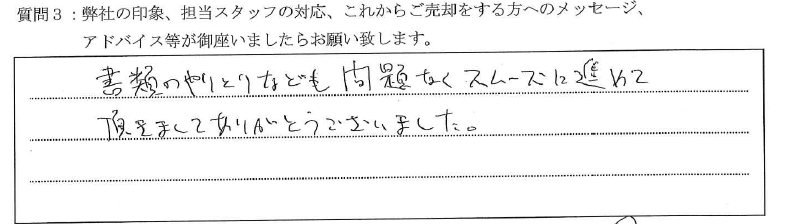 質問3：弊社の印象、担当スタッフの対応、これからご売却をする方へのメッセージ、
アドバイス等が御座いましたらお願い致します。
書類のやりとりなども問題なくスムーズに進めて
頂きましてありがとうございました。